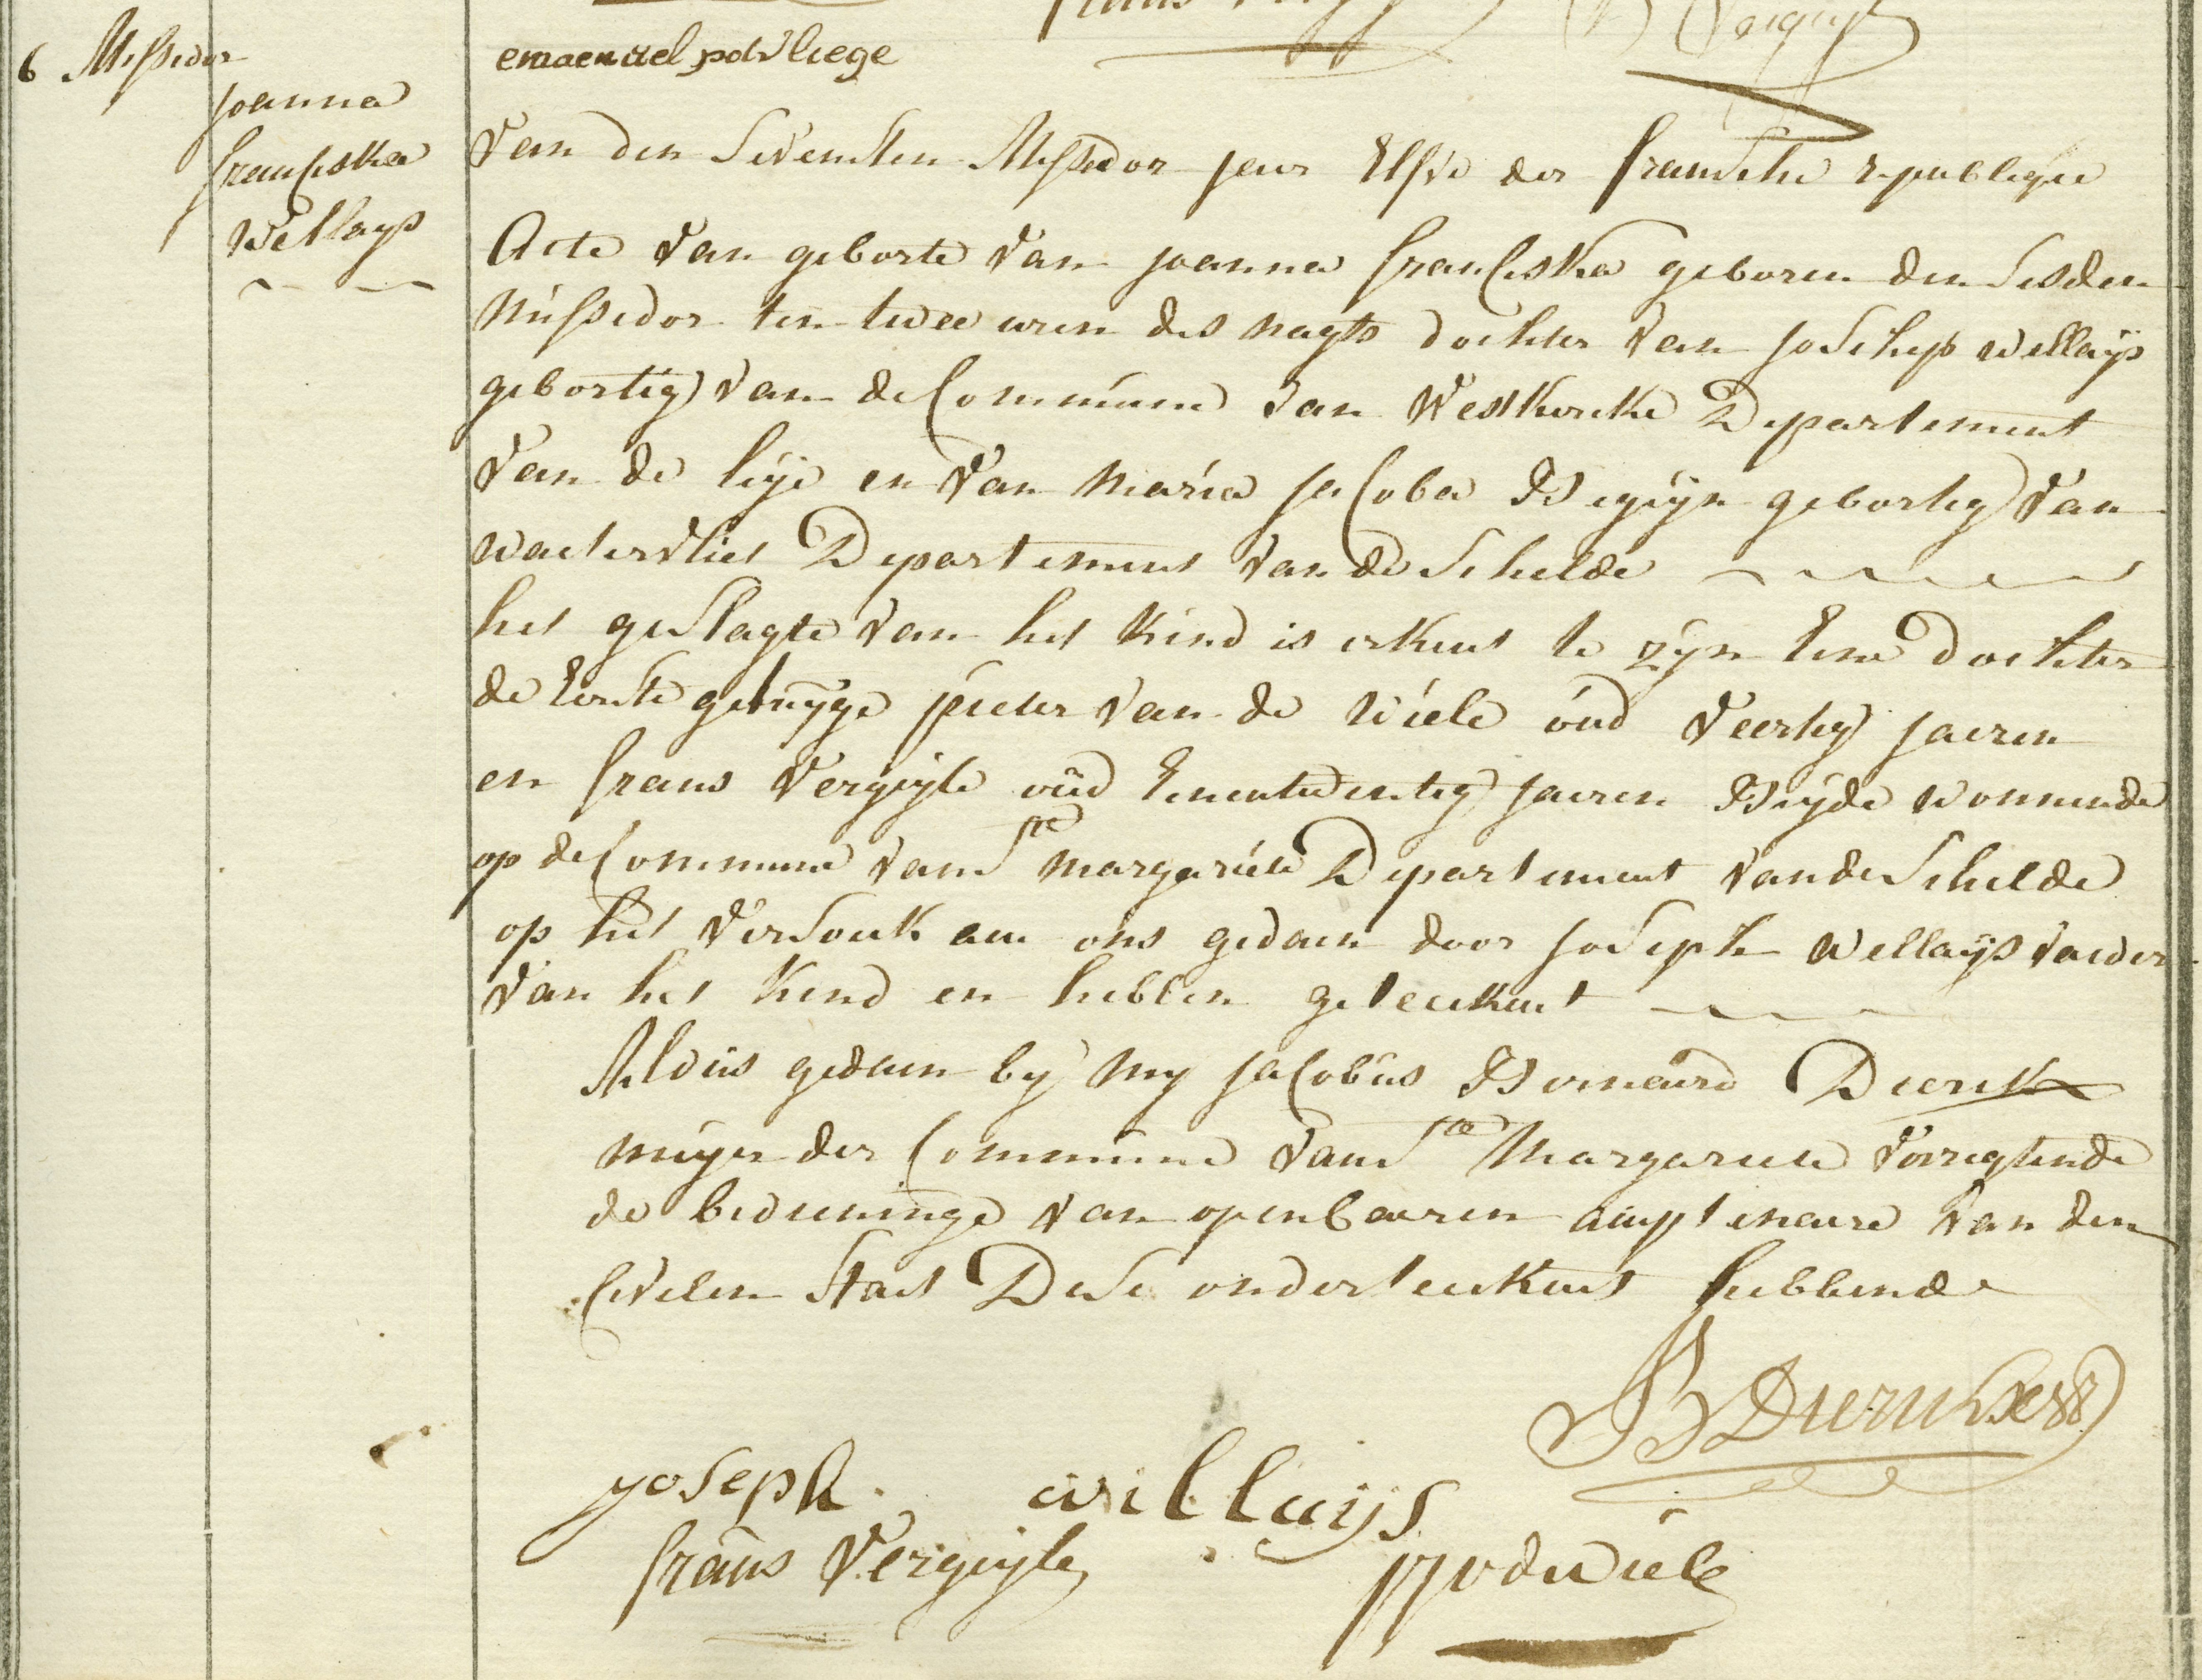 6 Messidor
Joanna
franciska
Wellays
emaenuel polvliege
Van den Sevensten Messidor jaer Elfde der fransche republique
Acte van geborte van joanna franciska geboren den Sesden
Missidor ten twee uren des nagts dochter van Joschep wellaÿs
gebortig van de Commúne van Westkercke Departement
van de leÿe en van maria jacoba Begÿn gebortig van
waetervliet Departement van de Schelde
het geslagte van het kind is erkent te zÿn Eene dochter
de Eerste getuÿge pieter van de wiele óud veertig jaeren
en frans Verguÿle oud Eenentwentig jaeren Bÿde wonnende
op de Commune van Ste margariete Departement van de Schelde
op het versouk aen ons gedaen door Joseph wellaÿs vaeder
van het kend en hebben geteekent
Aldus gedaen by my jacobus Bernaerd Dierick
meÿer der Commúne van Ste Margariete verregtende
de bedieninge van openbaeren amptenaere van den
civielen Staet Dese onderteekent hebbende
JB Dierickx
Joseph willaijs
frans Verguÿle
p j v de wiele